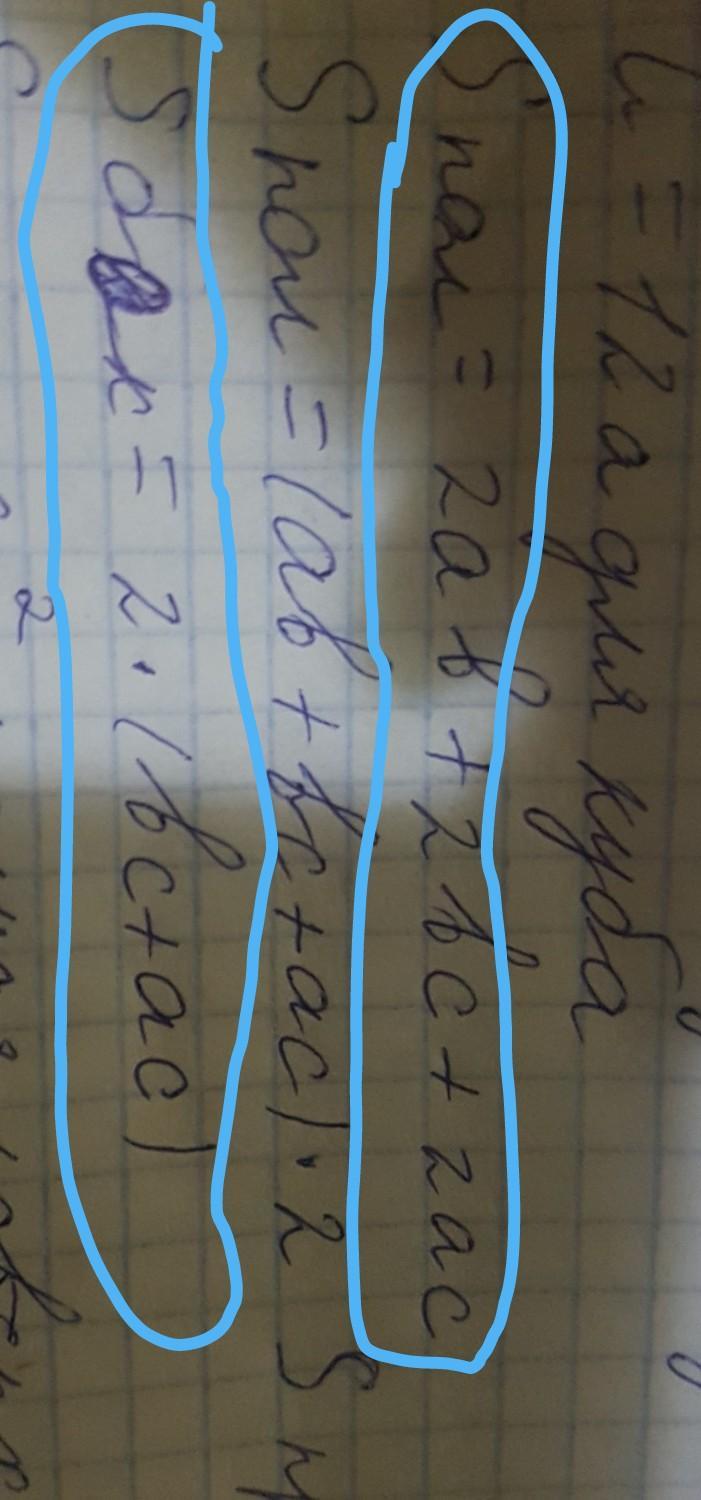 L = 12a для куба
S пол = 2ab + 2bc + 2ac
S пол = (ab + bc + ac) · 2 S
S бок = 2 · (bc + ac)